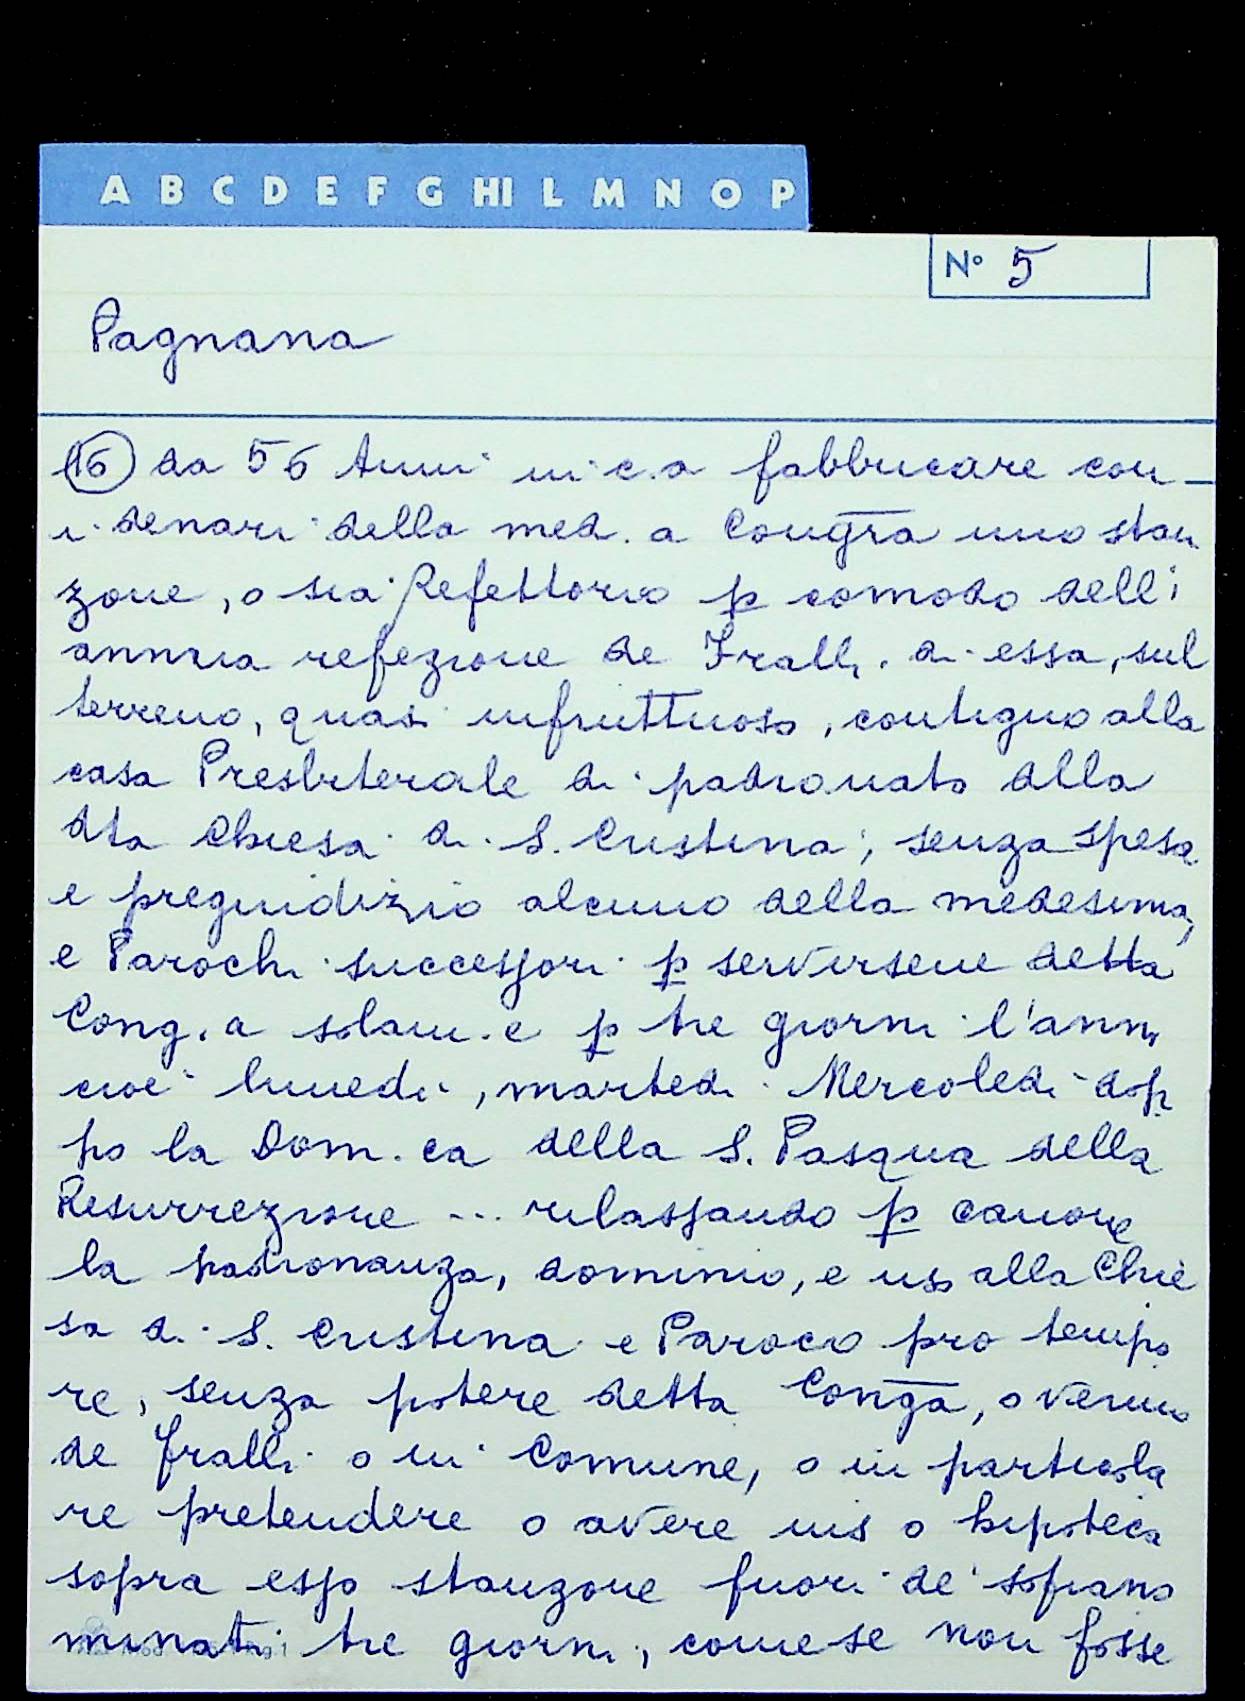 A B C D E F G HI L M N O P
N° 5
Pagnana
(16) da 56 Anni in c.a fabbricare con
i denari della med.a Congra uno stan
zone, o sia Refettorio p comodo dell'
annua refezione de Fralli. di essa, sul
terreno, quasi infruttuoso, contiguo alla
casa Presbiterale di padronato alla
dta Chiesa di S. Cristina, senza spesa
e pregiudizio alcuno della medesima,
e Parochi successori p serversene detta
Cong.a solam.e p tre giorni l'anno
cioè lunedi, martedi Mercoledi dop
po la Dom.ca della S. Pasqua della
Resurrezione ... rilassando p canone
la padronanza, dominio, e uso alla Chie
sa di S. Cristina e Paroco pro tempo
re, senza potere detta Conga, o veruno
de fralli o in Comune, o in particola
re pretendere o avere ius o hipoteca
sopra esso stanzone fuori de' soprano
minati tre giorni, come se non fosse